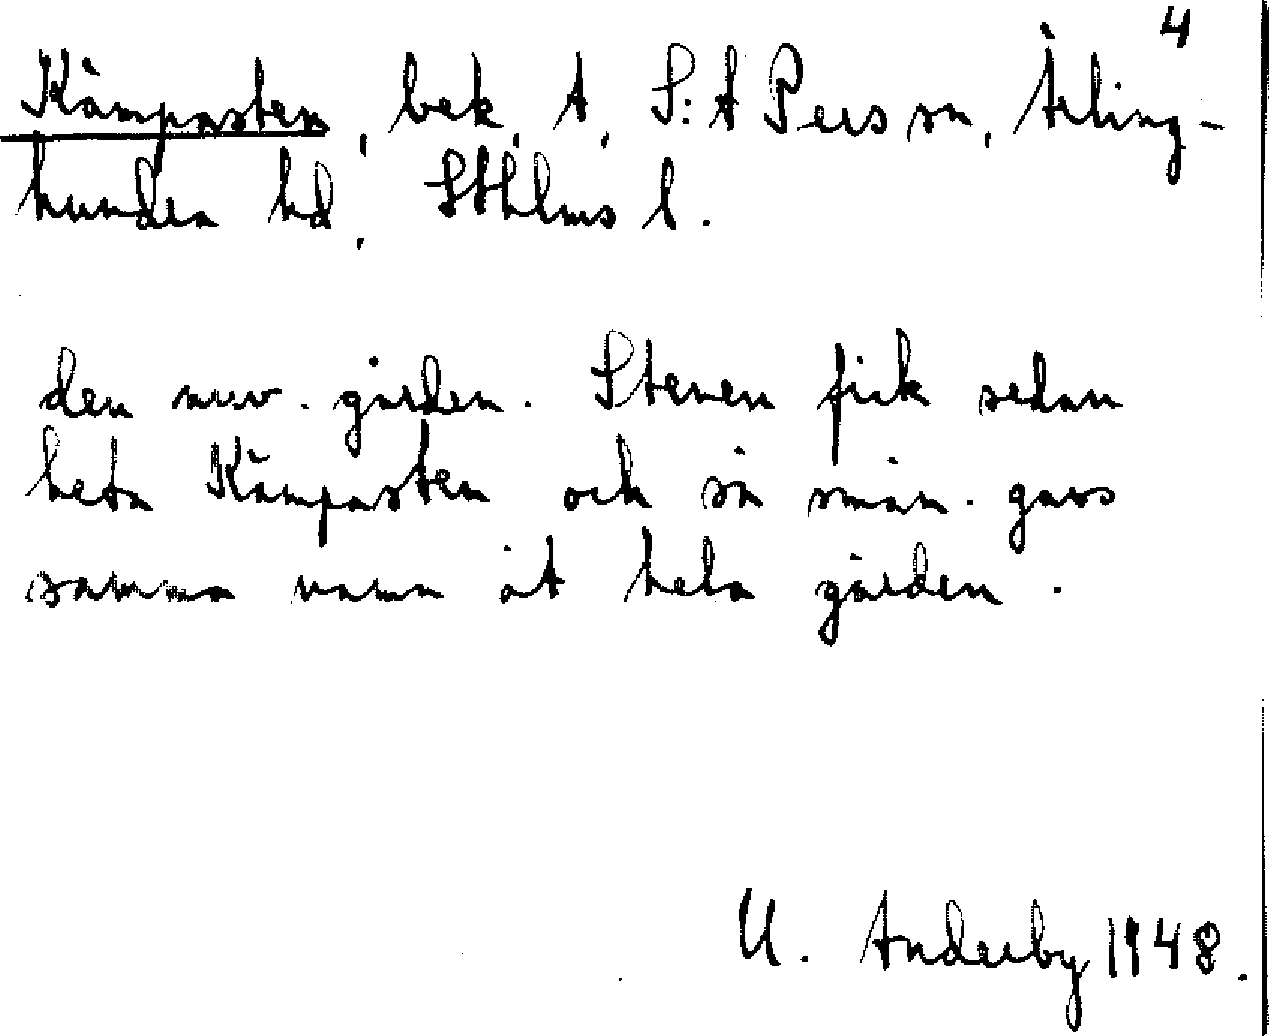 4
Kämpasten, bek, t, S:t Pers sn, Ärling-
hundra hd, Sthlms l.
den nuv. gården. Stenen fick sedan
heta Kämpasten och så små n. gavs
samma namn åt hela gården.
U. Anderby 1948.